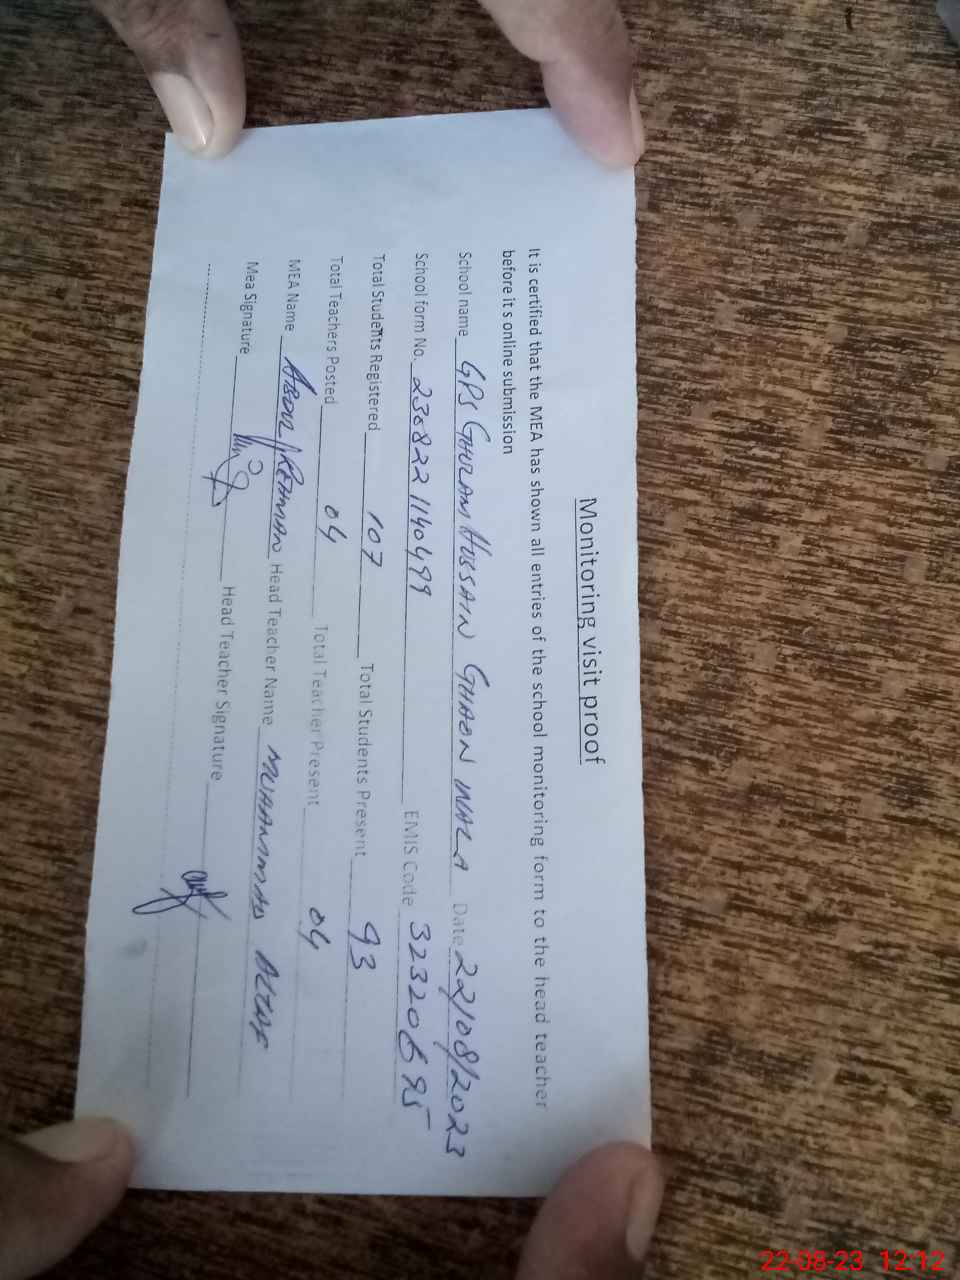 Monitoring visit proof
It is certified that the MEA has shown all entries of the school monitoring form to the head teacher
before it s online submission
School name GPS GHULAM HUSSAIN GHAON WALA Date 22/08/2023
School form No. 230822 1140499 EMIS Code 32320695
Total Students Registered 107 Total Students Present 93
Total Teachers Posted 04 Total Teacher Present 04
MEA Name ABDUL REHMAN Head Teacher Name MUHAMMAD ALTAF
Mea Signature Head Teacher Signature
22-08-23 12:12